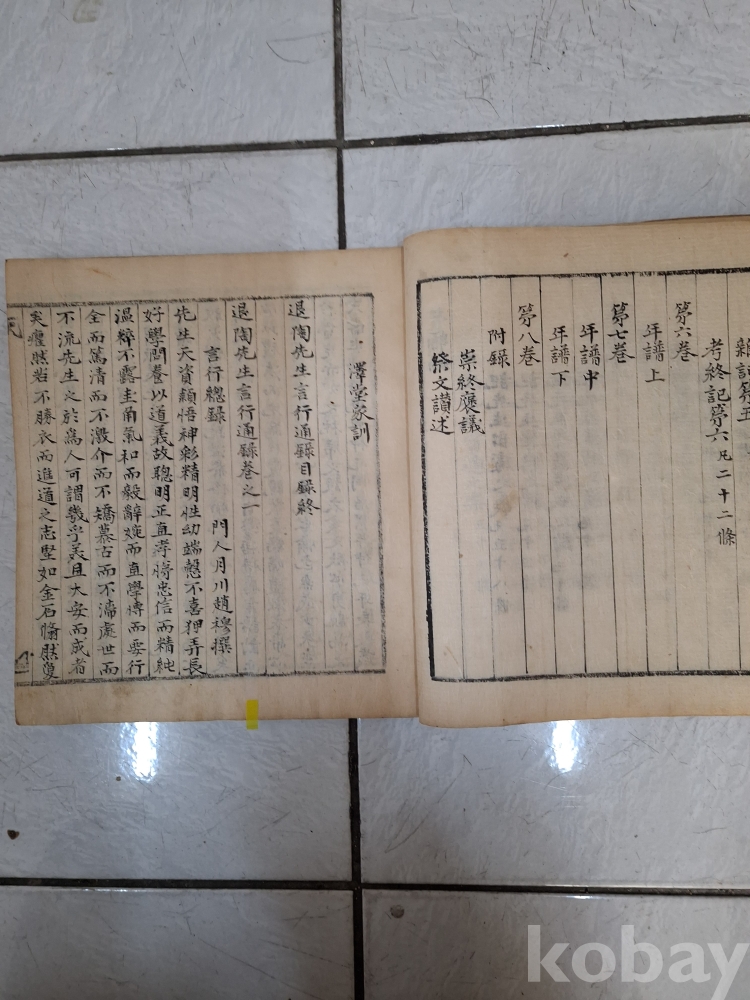 雜記第五
考終記第六 凡二十二條
第六卷
年譜上
第七卷
年譜中
年譜下
第八卷
附錄
崇終褒議
祭文讃述
澤堂家訓
退陶先生言行通錄目錄終
退陶先生言行通錄卷之一
言行總錄 門人月川趙穆撰
先生天資穎悟神彩精明性幼端慤不喜狎弄長
好學問養以道義故聰明正直孝悌忠信而精純
溫粹不露圭角氣和而毅辭婉而直學博而要行
全而篤清而不激介而不矯慕古而不滯處世而
不流先生之於爲人可謂幾乎美且大安而成者
矣癯然若不勝衣而進道之志堅如金石脩然
kobay